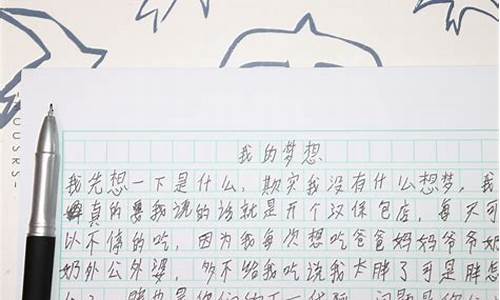 我的梦想
我先想一下是什么，欺实我没有什么想梦，我
真的要我说的话就是开个汉保包店，每天可
以不停的吃，因为我每次想吃爸爸妈妈爷爷奶
奶外公外婆，多不给我吃说我卡胖了可是胖怎